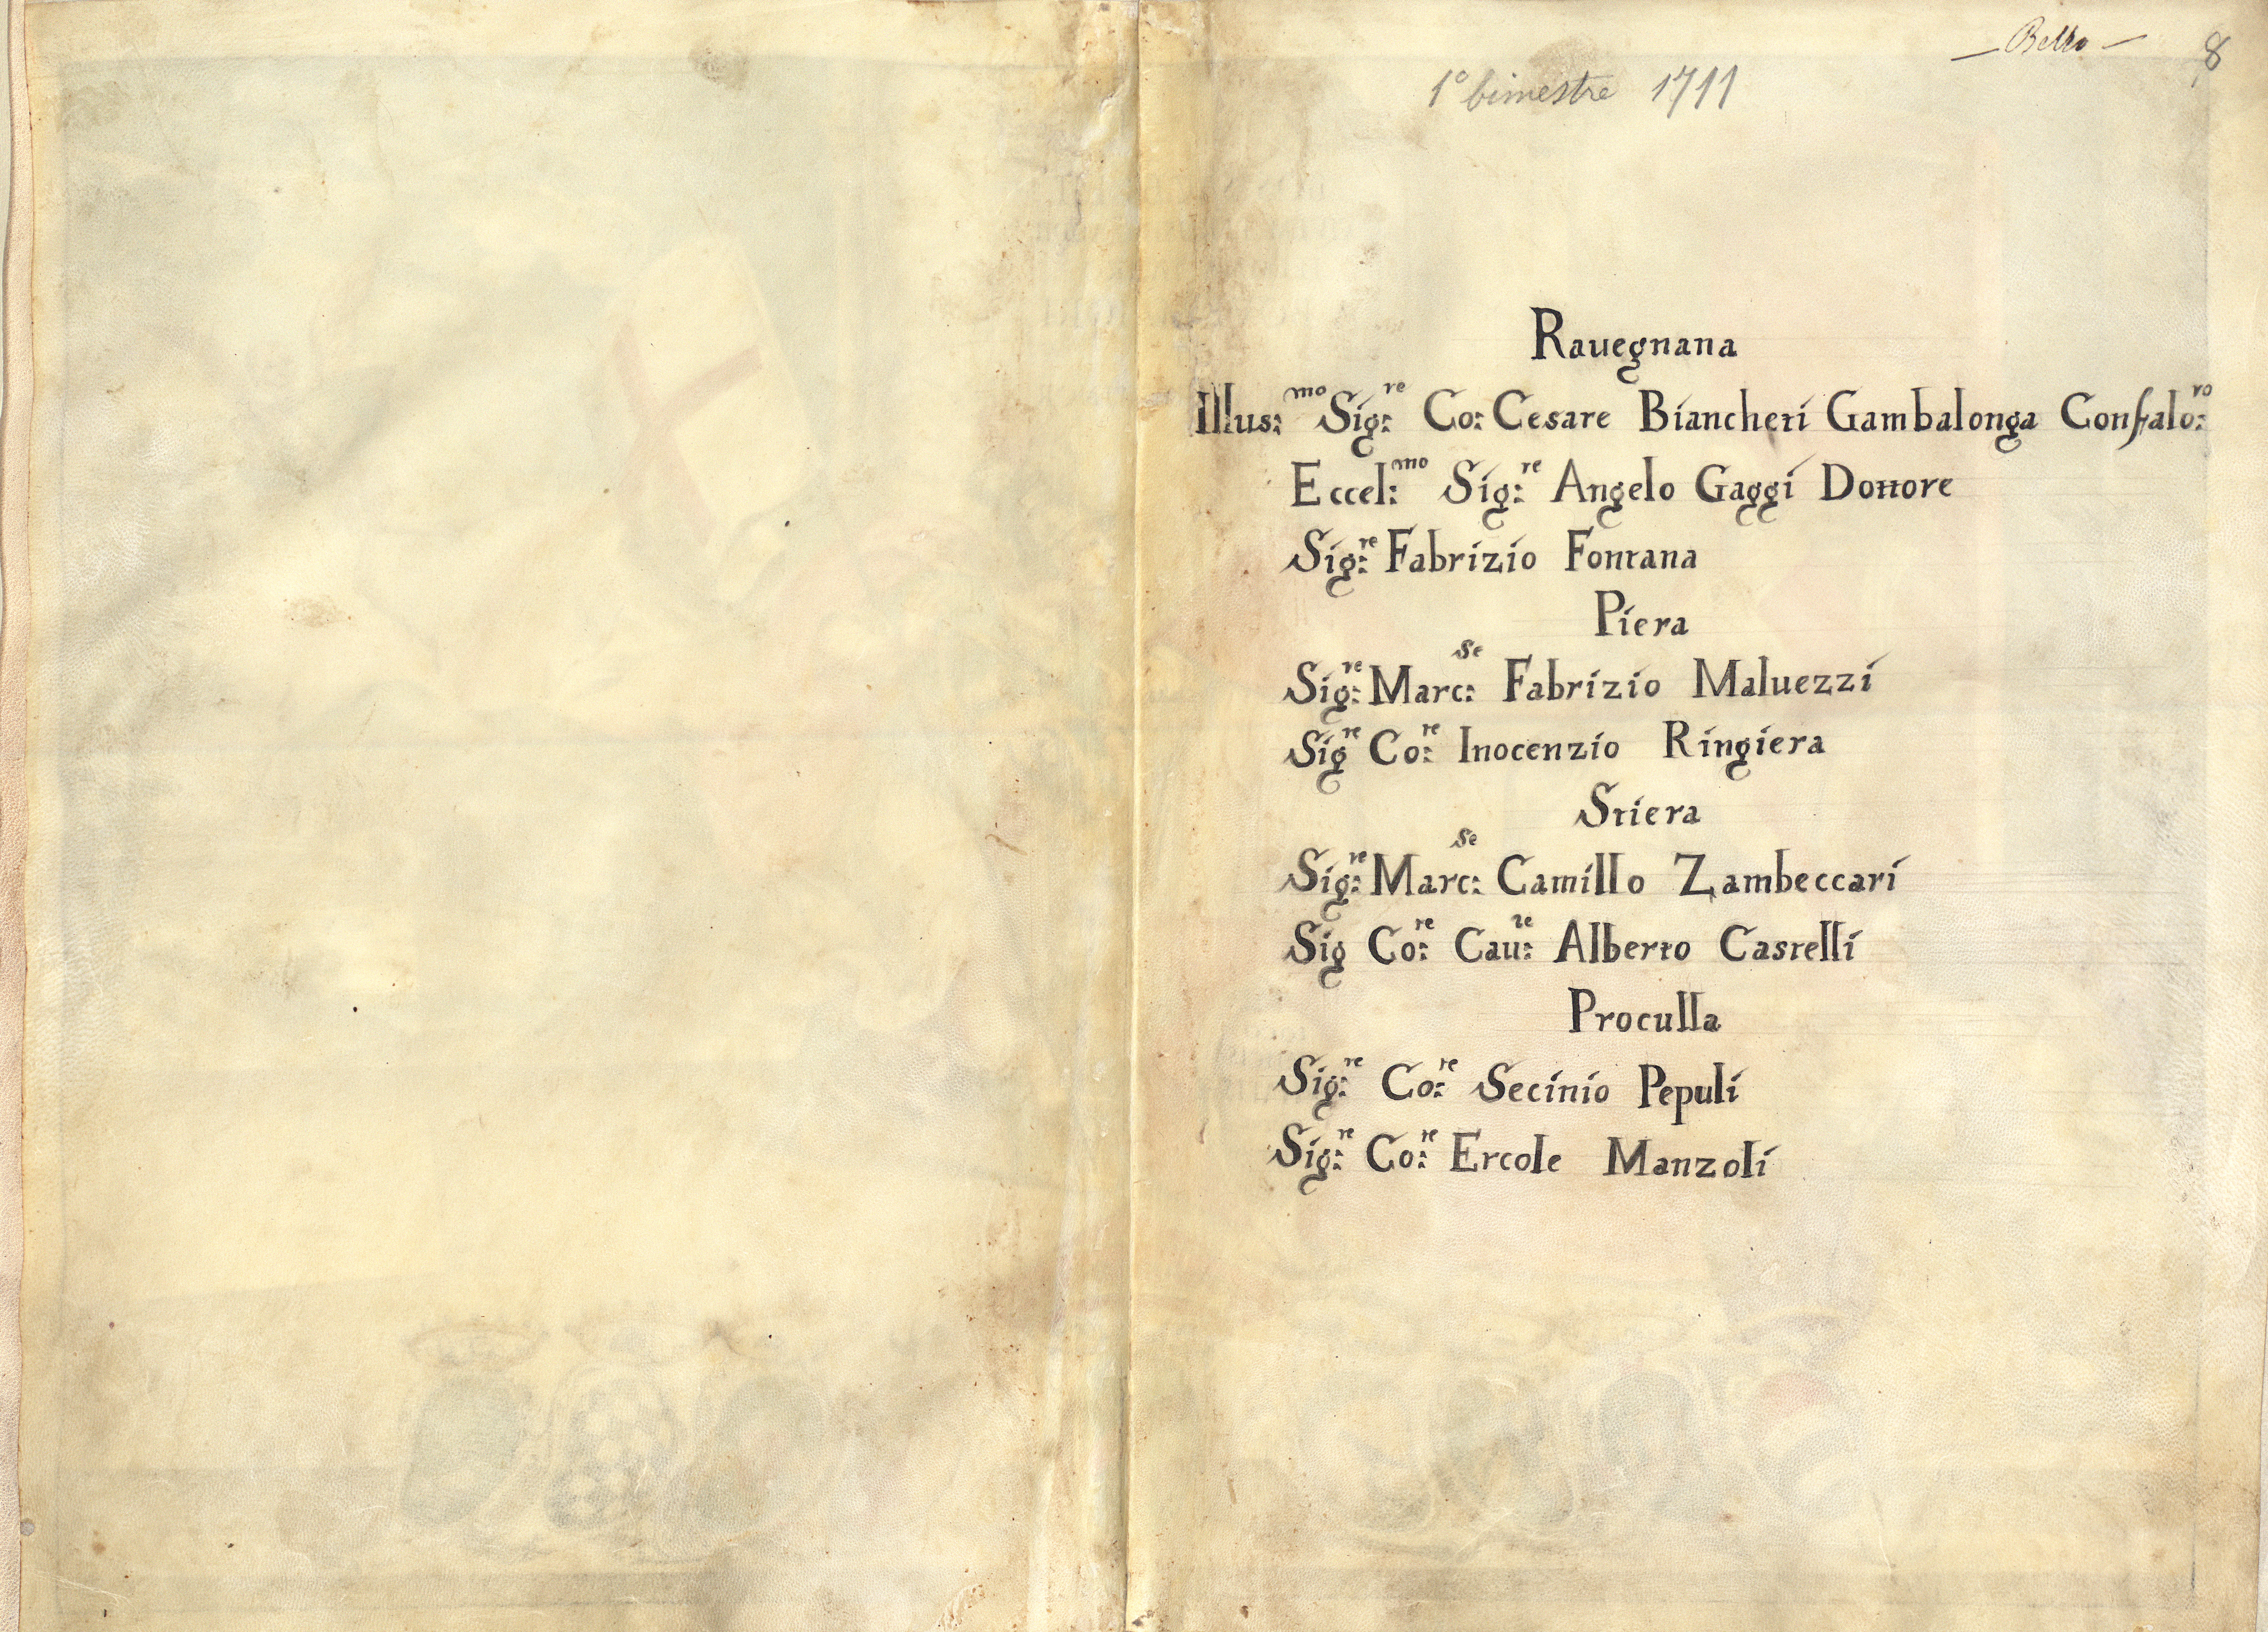 — Bello —
8
1º bimestre 1711
Rauegnana
Illus:mo Sig:re Co: Cesare Biancheti Gambalonga Confalo:ro
Eccel:mo Sig:re Angelo Gaggi Dottore
Sig:re Fabrizio Fontana
Piera
Sig:re Marc:se Fabrizio Maluezzi
Sigre Co:re Inocenzio Ringiera
Stiera
Sig:re Marc:se Camillo Zambeccari
Sig Co:re Cau:re Alberto Castelli
Proculla
Sig:re Co:re Secinio Pepuli
Sig:re Co:re Ercole Manzoli